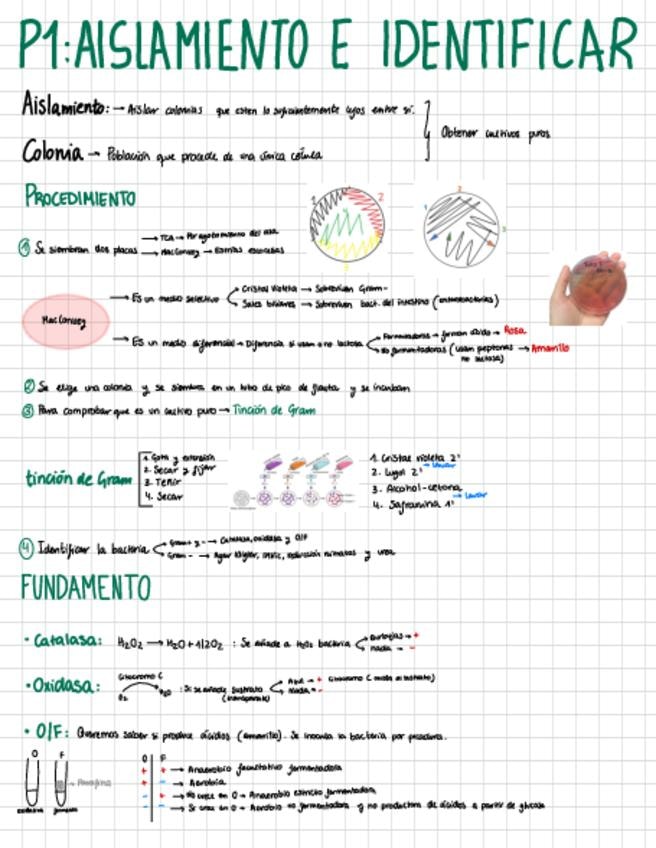 P1: AISLAMIENTO E IDENTIFICAR
Aislamiento: → Aislar colonias que esten lo suficientemente lejos entre sí.
Obtener cultivos puros
Colonia → Población que procede de una única célula
PROCEDIMIENTO
① Se siembran dos placas
TCA → Por agotamiento del asa
MacConkey → Estrías escocesas
1 2 3
1 2 3
MacConkey
→ Es un medio selectivo
Cristal violeta → Sobreviven Gram-
Sales biliares → Sobreviven bact. del intestino (enterobacterias)
→ Es un medio diferencial → Diferencia si usan o no lactosa
Fermentadoras → forman ácido → Rosa
No fermentadoras (usan peptonas no lactosa) → Amarillo
② Se elige una colonia y se siembra en un tubo de pico de flauta y se incuban
③ Para comprobar que es un cultivo puro → Tinción de Gram
tinción de Gram
1. Gota y extensión
2. Secar y fijar
3. Teñir
4. Secar
1. Cristal violeta 2'
→ Lavar
2. Lugol 2'
3. Alcohol-cetona
→ Lavar
4. Safranina 1'
④ Identificar la bacteria
Gram + y - → Catalasa, oxidasa y O/F
Gram - → Agar kligler, citrato, reducción nitratos y urea
FUNDAMENTO
• Catalasa: H2O2 → H2O + 1/2O2 : Se añade a H2O2 bacteria
Burbujas → +
Nada → -
• Oxidasa:
Citocromo C
O2 H2O
: Si se añade sustrato (transparente)
Azul → + Citocromo C (oxida el sustrato)
Nada → -
• O/F: Queremos saber si produce ácidos (amarillo). Se inocula la bacteria por picadura.
O F
→ Parafina
O F
+ + → Anaerobio facultativo fermentadora
+ - → Aerobia
- + → No crece en O → Anaerobio estricto fermentadora
- - → Si crece en O → Aerobio no fermentadora y no productora de ácidos a partir de glucosa